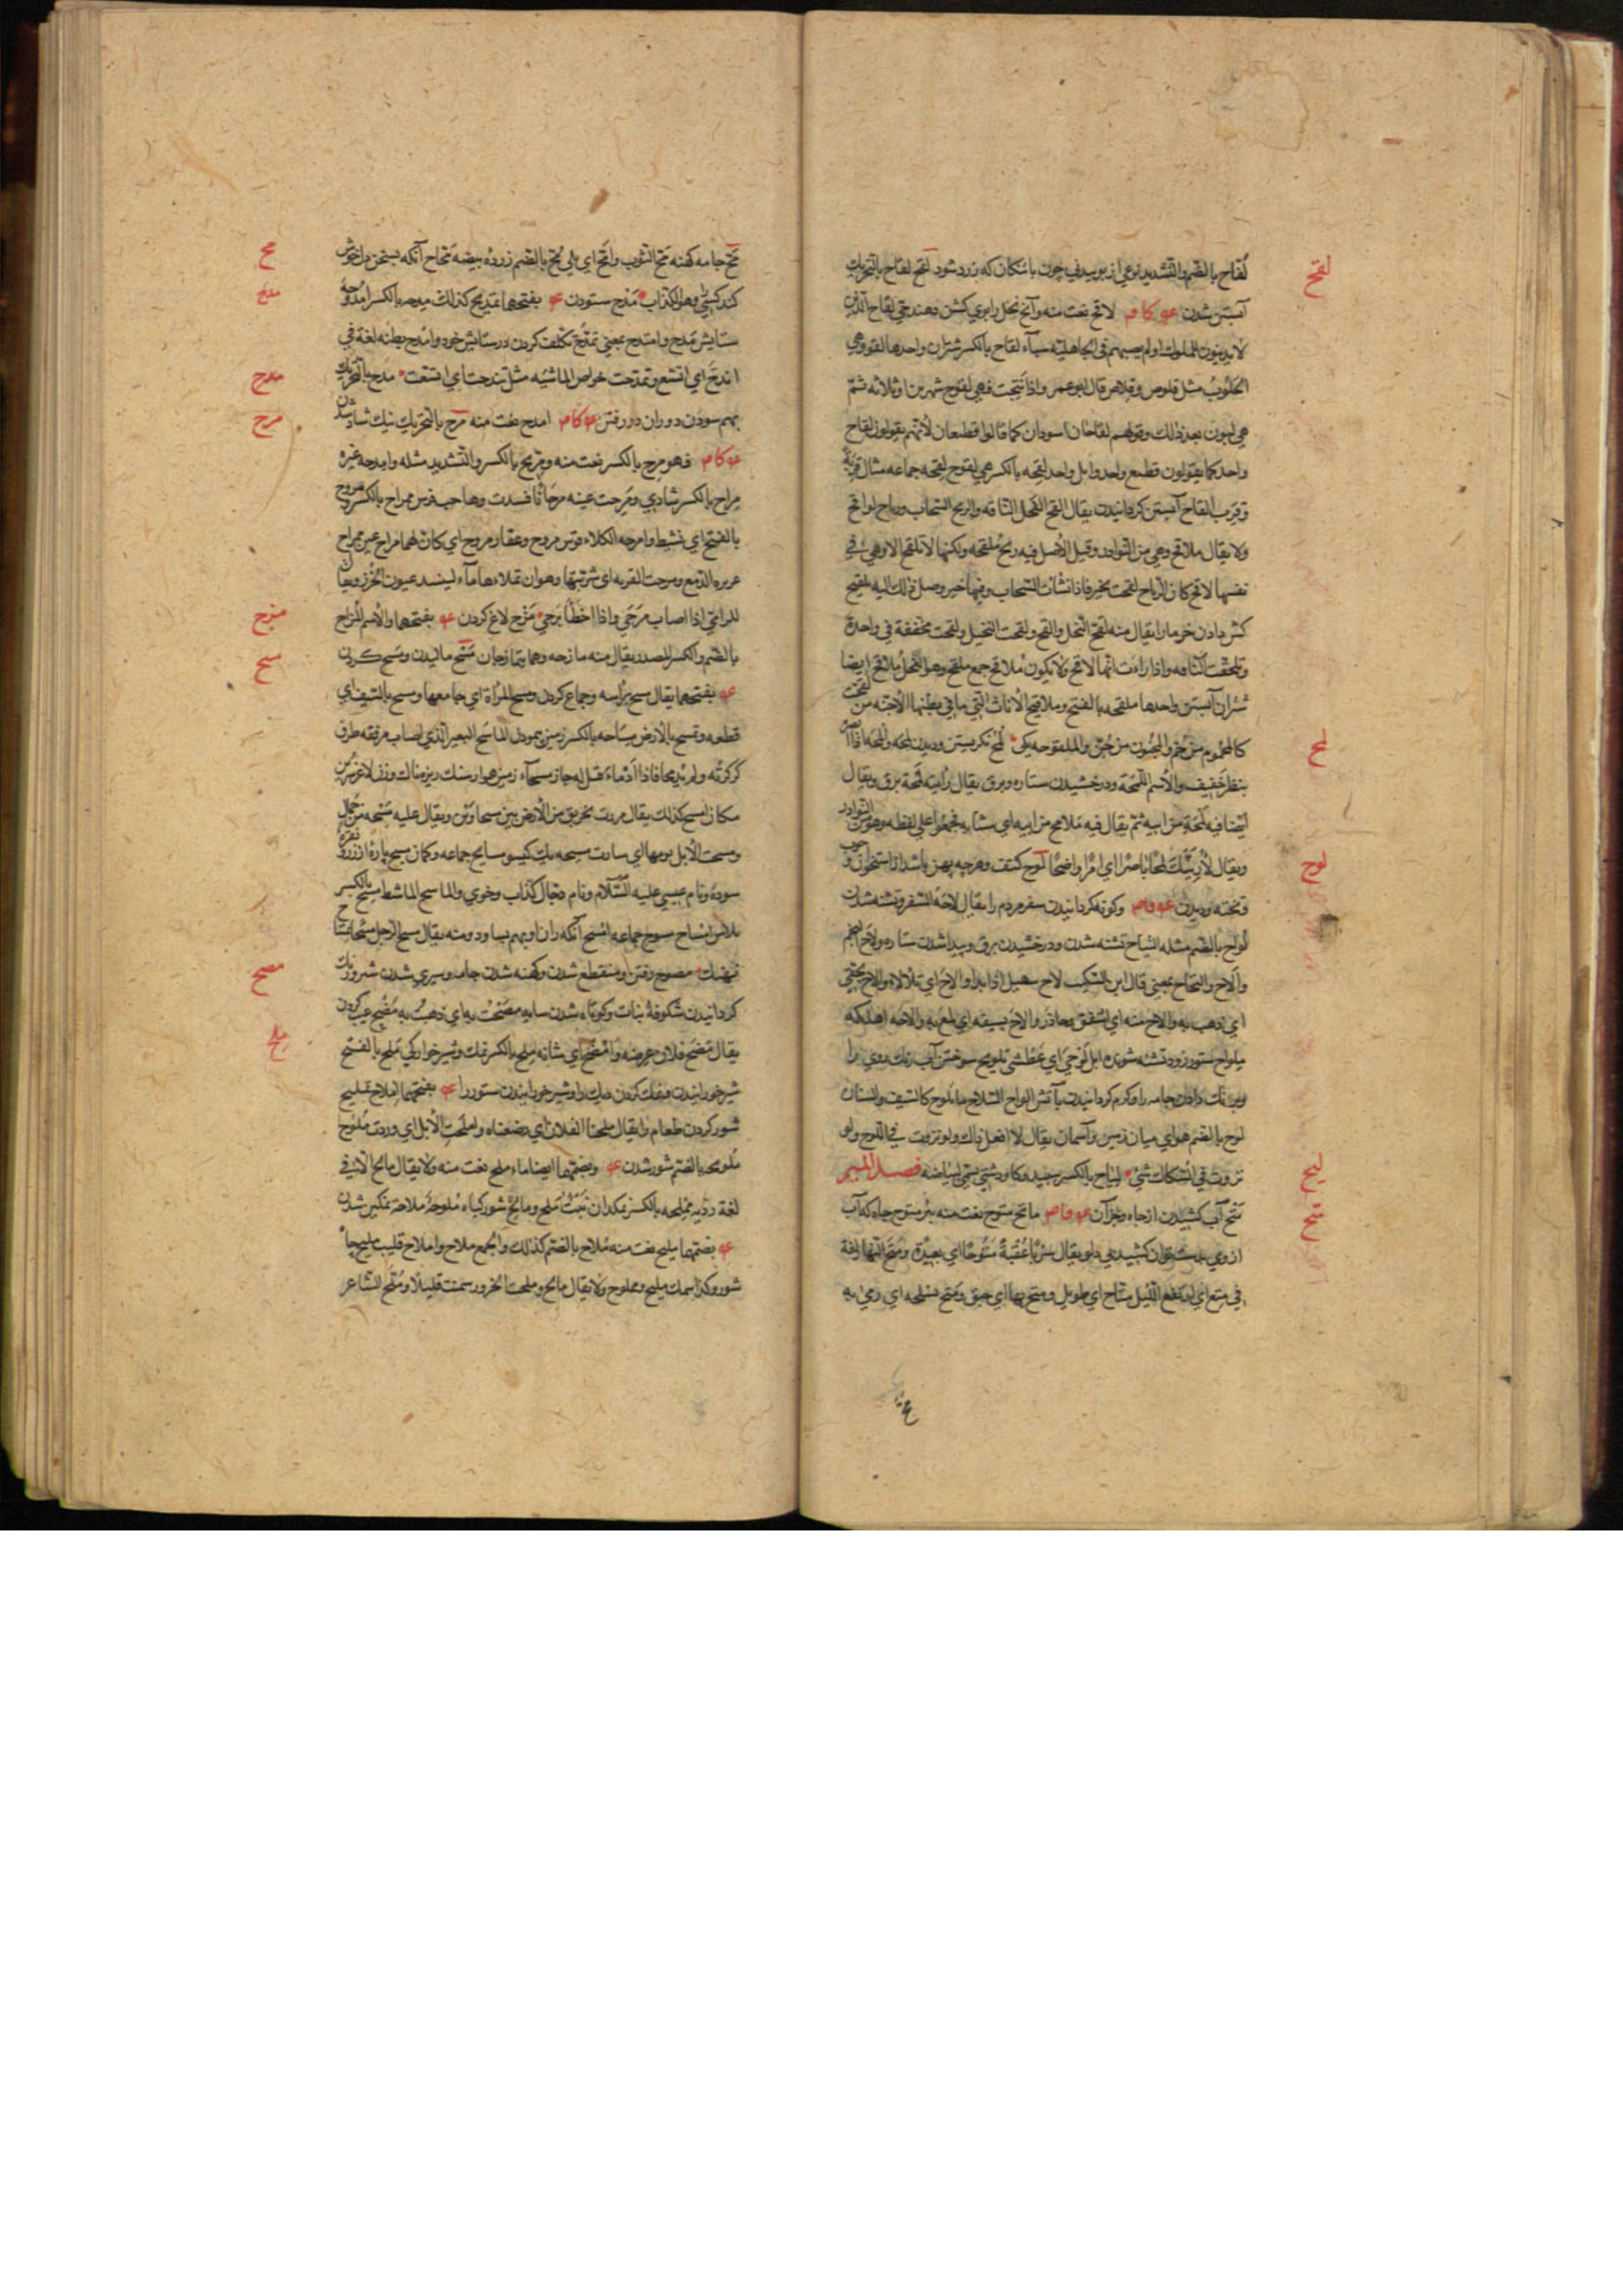 لقح
لُفّاح بالضم والتشديد نوعی از بوییدنی چون باتنکان که زرد شود لقح لقاح بالتحریك
آبستن شدن لاقح نعت منه وآنچ نحل رابوی کشن دهند حی لقاح الذین
لا یدینون للملوك او لم یصبهم فی الجاهلیة سباء لقاح بالکسر شتران واحدها لقوح وهی
الحلوب مثل قلوص وقلاص قال ابو عمرو اذا نتجت فهی لقوح شهرین او ثلاثة ثم
هی لبون بعد ذلك وقولهم لقاحان اسودان کما قالوا قطیعان لأنهم یقولون لقاح
واحد کما یقولون قطیع واحد وابل واحد لقحه بالکسر هی لقوح لقحه جماعه مثال قربة
وقرب القاح آبستن کردانیدن یقال القح الفحل الناقه والریح السحاب وریاح لواقح
ولا یقال ملاقح وهی من النوادر وقیل الأصل فیه ریح ملقحه ولکنها لا تلقح الا وهی فی
نفسها لاقح کان الریاح لقحت بخیر فاذا انشأت السحاب وفیها خیر وصل ذلك الیه تلقیح
کش دادن خرما را یقال منه لقح النخل والقح ولقحت النخیل ولقحت مخففة فی واحدة
وتلقحت الناقه واذا راءت انها لاقح ولا تکون ملاقح جمع ملقح وهو الفحل ملاقح ایضا
شتران آبستن واحدها ملقحه بالفتح وملاقیح الأناث التی ما فی بطنها الأجنّه من لقحت
لمح
کالمحموم من حُمّ والمجنون من جُنّ والملقوحه یکی لمح نکریستن ودیدن لمحه والمحه اذا ابصر
بنظر خفیف والأسم اللمحة ودرخشیدن ستاره وبرق یقال رأیت لمحة برق ویقال
ایضا فیه لمحة من ابیه ثم یقال فیه ملامح من ابیه ای مشابه فجمعوا علی لفظه وهو من النوادر
لوح
ویقال لأرینّك لمحًا باصرًا ای امرًا واضحًا لوح کتف وهرچه پهن باشد از استخوان وچوب
وتخته ودیدن وکوته کردانیدن سفر مردم را یقال لاحه السفر وتشنه شدن
لواح بالضم مثله التیاح تشنه شدن ودرخشیدن برق وپیدا شدن ستاره ولاح النجم
والاح والتحاح بمعنی قال ابن السکیت لاح سهیل اذا بدا والاح ای تلألأ والاح بحقی
ای ذهب به والاح منه ای اشفق وحاذر والاح بسیفه ای لمع به والاحه اهلکه
ملواح ستور زود تشنه شونده ابل لوحی ای عطشی تلویح سوختن آب رنك روی را
وبرنك دادن وجامه را وکرم کردانیدن بآتش الواح السلاح ما یلوح کالسیف والسنان
لوح بالضم هوای میان زمین وآسمان یقال لا افعل ذاك ولو نزوت فی اللوح ولو
لیح
نزوت فی السکاك شیء لیاح بالکسر سپید وکاو دشتی سمی لبیاضه فصل المیم
متح
متح آب کشیدن از چاه وجز آن ماتح متوح نعت منه بئر متوح چاه که آب
از وی بدست توان کشید بی دلو یقال سرنا عقبة متوحًا ای بعیدة ومتح النهار لغة
فی متع ای ارتفع اللیل متاح ای طویل ومتح بها ای حبق ومتح بسلحه ای رمی به
مح
مح جامه کهنه مح الثوب وامح ای بلی مح بالضم زرده بیضه محاح آنکه بسخن دل خوش
مدح
کند کسی را وهو الکذاب مدح ستودن بفتحهما تمدیح کذلك مدحه بالکسر امدوحة
ستایش مدح وامتدح بمعنی تمدح تکلف کردن درستایش خود وامدح بطنه لغة فی
مدح
اندح ای اتسع وتمدحت خواصر الماشیه مثل تندحت ای اتسعت مذح بالتحریك
مرح
بهم سودن دو ران در رفتن امذح نعت منه مرح بالتحریك نیك شاد شدن
فهو مرح بالکسر نعت منه ومریح بالکسر والتشدید مثله وامرحه غیره
مراح بالکسر شادی ومرحت عینه مرحانًا فسدت وهاجت فرس ممراح بالکسر ومروح
بالفتح ای نشیط وامرحه الکلاء قوس مروح وعقار مروح ای کان لهما مراح عین ممراح
غزیرة الدمع ومرحت القربه ای شربتها وهو ان تملاءها ماء لینسد عیون الخرز ویقال
مزح
للرامی اذا اصاب مرحی واذا اخطأ برحی مزح لاغ کردن بفتحهما والأسم المزاح
مسح
بالضم والکسر المصدر یقال منه مازحه وهما یتمازحان مسح مالیدن ومسح کردن
بفتحهما یقال مسح برأسه وجماع کردن ومسح المرأة ای جامعها ومسح بالسیف ای
قطعه وتمسح بالأرض مساحه بالکسر زمین پیمودن الماسح البعیر الذی اصاب مرفقه طرف
کرکرته ولم یدمها فاذا ادماه قیل له حاز مسحاء زمین هموار سنك ریزه ناك وزن لاغر سرین
مکان امسح کذلك یقال مررت بخریق من الأرض بین مسحاوین ویقال علیه مسحه من جمال
ومسحت الأبل یومها ای سارت مسیحه یك کیسو مسایح جماعه وکمان مسیح پارۀ از زر ونقره
سوده ونام عیسی علیه السلام ونام دجال کذاب وخوی والماسح الماشط مسح بالکسر
پلاس امساح مسوح جماعه امسح آنکه ران او بهم بساود ومنه یقال مسح الرجل مسحا تمساح
مصح
نهنك مصوح رفتن ومنقطع شدن وکهنه شدن جامه وسپری شدن شیر ورنك
کردانیدن شکوفۀ نبات وکوتاه شدن سایه مصحت به ای ذهبت به مضح عیب کردن
ملح
یقال مضح فلان عرضه وامضح ای شانه ملح بالکسر نمك وشیر خوارکی ملح بالفتح
شیر خورانیدن ونمك کردن دیك را وشیر خورانیدن ستور را بفتحهما املاح تملیح
شور کردن طعام را یقال ملحنا لفلان ای رضعناه واملحت الأبل ای وردت ملوح
ملوحه بالضم شور شدن وبضمهما ایضا ماء ملح نعت منه ولا یقال مالح الا فی
لغة ردّیه مملحه بالکسر نمکدان نبت ملح ومالح شور کیاه ملوحة ملاحة نمکین شدن
بضمهما ملیح نعت منه ملاح بالضم کذلك والجمع ملاح واملاح قلیب ملیح چاه
شور وکذا سمك ملیح ومملوح ولا یقال مالح وملحت الجزور سمنت قلیلا وملّح الشاعر